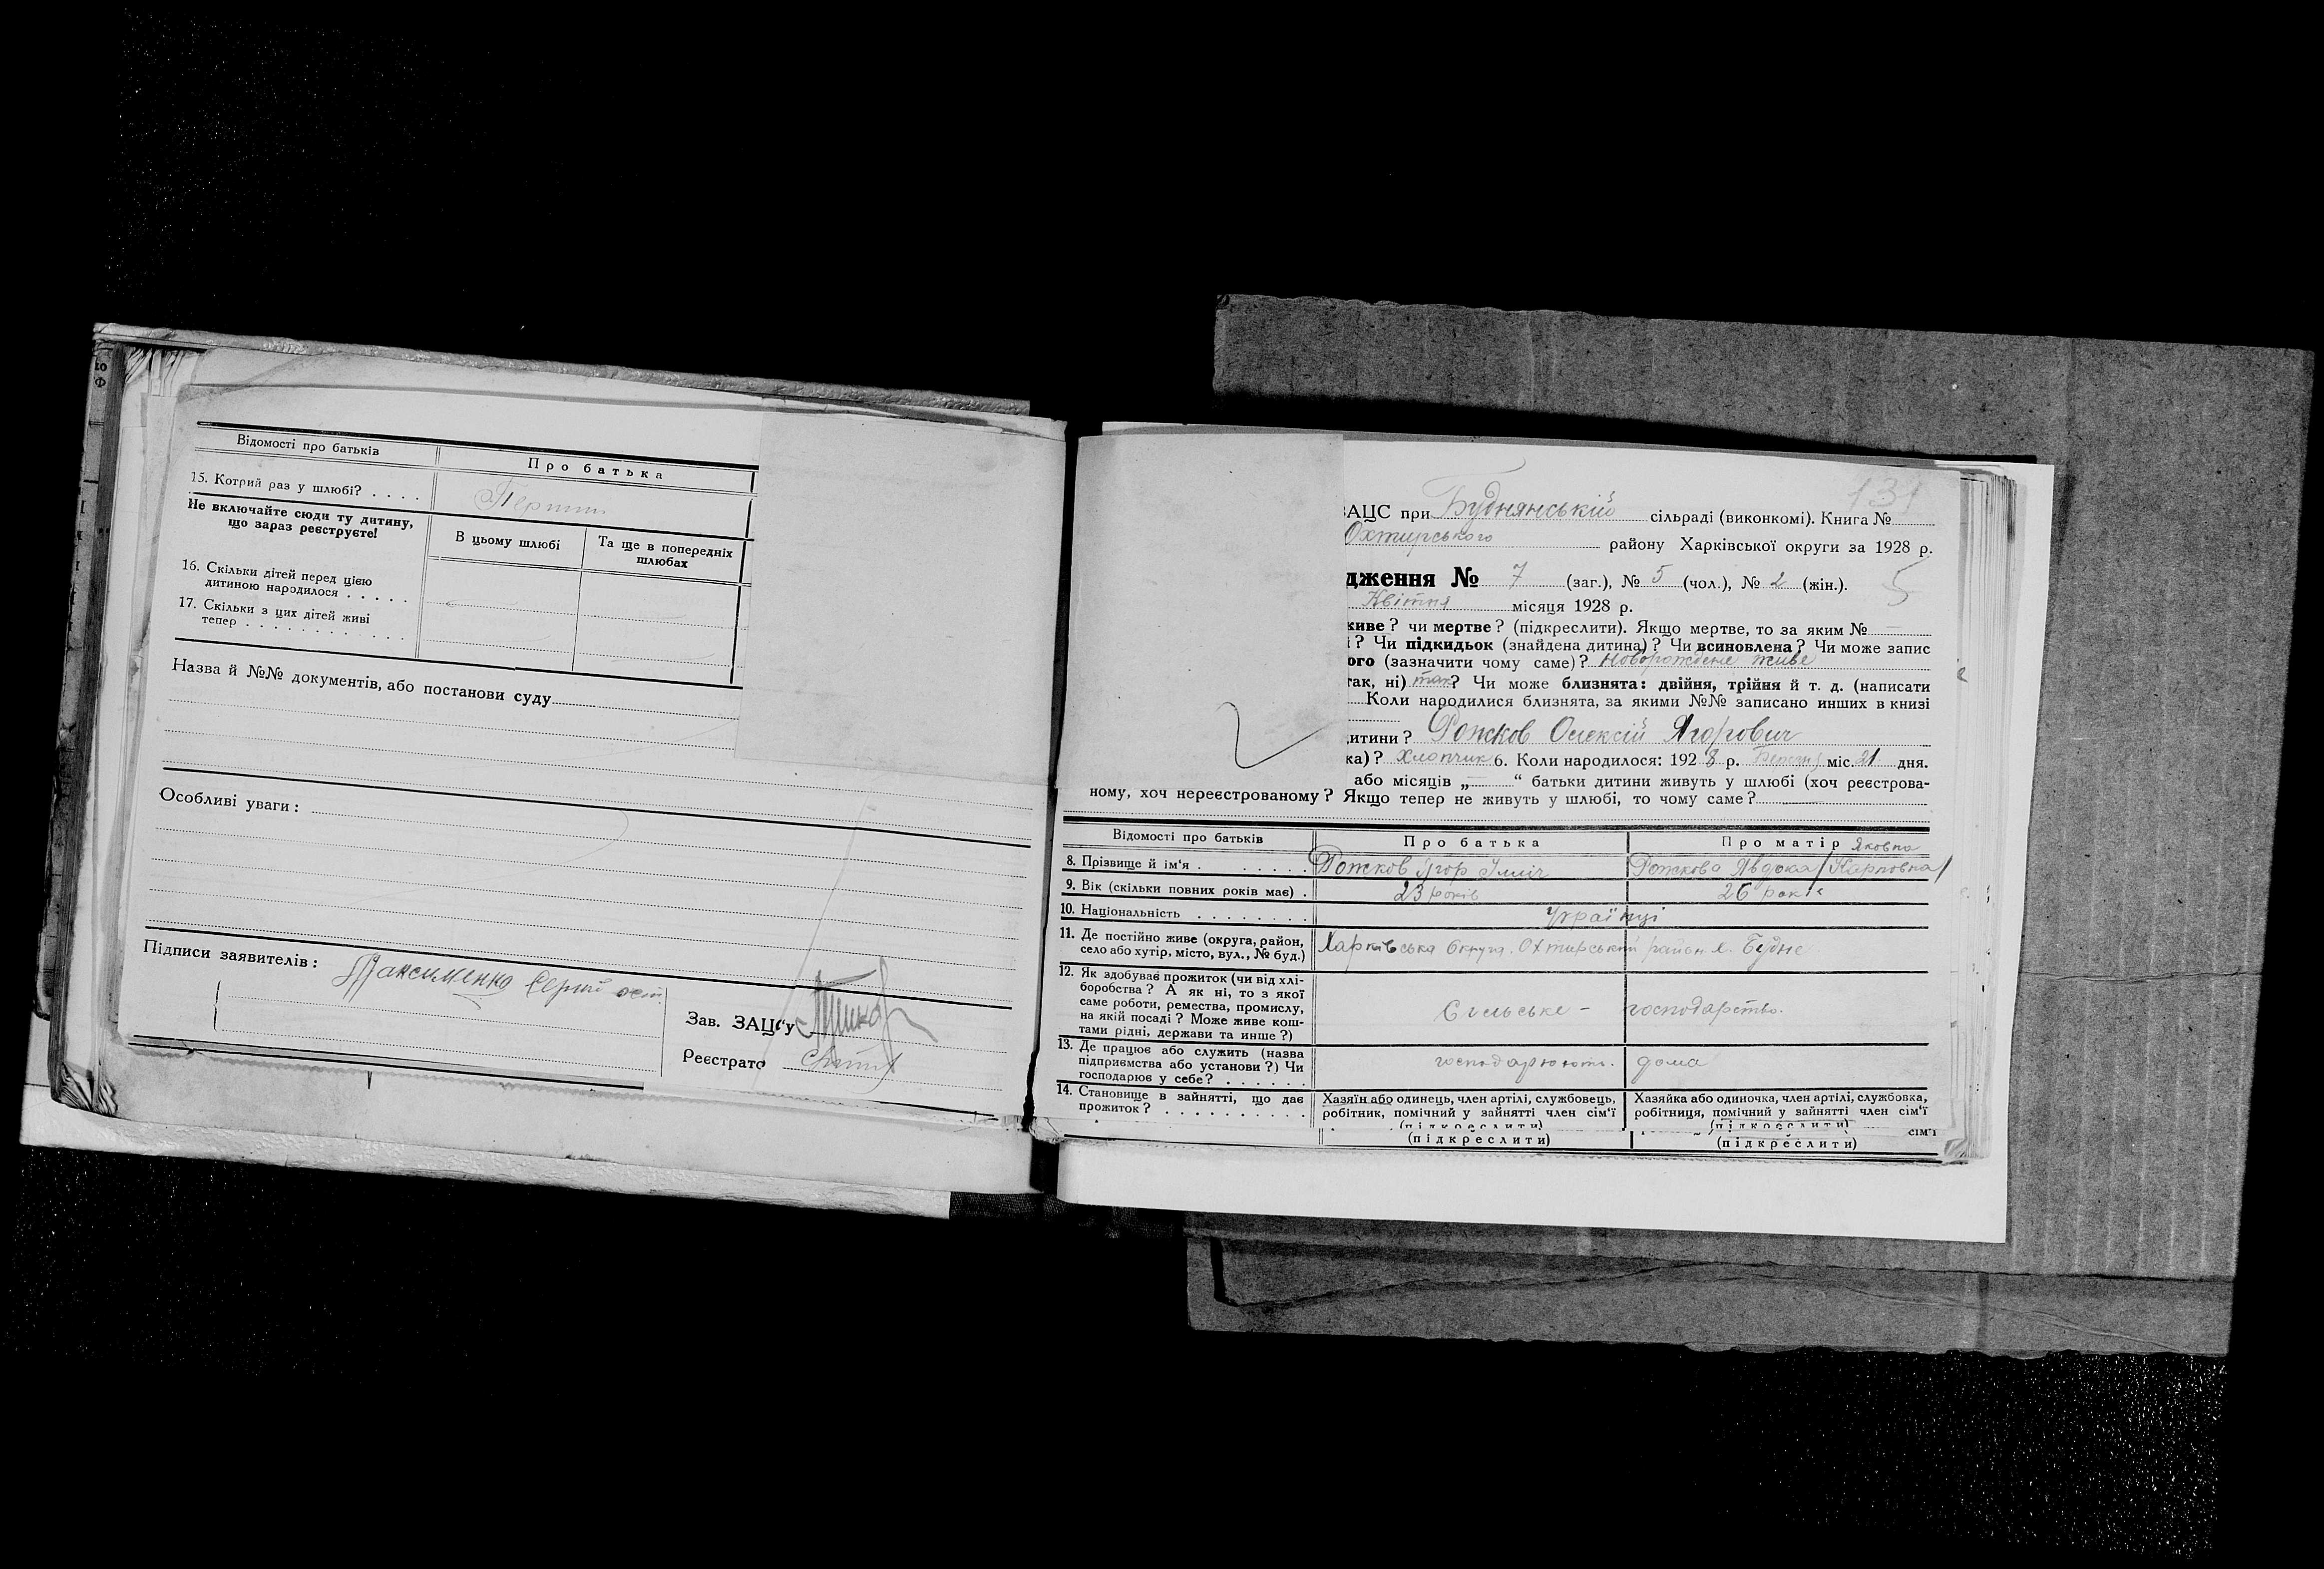 Відомості про батьків
Про батька
15. Котрий раз у шлюбі? . . . .
Перший
Не включайте сюди ту дитину,
що зараз реєструєте!
В цьому шлюбі
Та ще в попередніх
шлюбах
16. Скільки дітей перед цією
дитиною народилося . . . . .
17. Скільки з цих дітей живі
тепер . . . . . . . . . . . .
Назва й №№ документів, або постанови суду
Особливі уваги:
Підписи заявителів:
Максименко Сергій
Зав. ЗАЦС'у
Реєстрато
131
ЗАЦС при Буднянській сільраді (виконкомі). Книга №
Охтирського району Харківської округи за 1928 р.
дження № 7 (заг.), № 5 (чол.), № 2 (жін.).
5
Квітня місяця 1928 р.
живе? чи мертве? (підкреслити). Якщо мертве, то за яким № —
і? Чи підкидьок (знайдена дитина)? Чи всиновлена? Чи може запис
ого (зазначити чому саме)? Новорождене живе
так, ні) так? Чи може близнята: двійня, трійня й т. д. (написати
Коли народилися близнята, за якими №№ записано инших в книзі
итини? Рожков Олексій Ягорович
ка)? Хлопчик 6. Коли народилося: 1928 р. Березня міс. 21 дня.
або місяців „—“ батьки дитини живуть у шлюбі (хоч реєстрова-
ному, хоч нереєстрованому? Якщо тепер не живуть у шлюбі, то чому саме? —
Відомості про батьків
Про батька
Про матір
Яковна
8. Прізвище й ім'я . . . . . .
Рожков Ягор Ілліч
Рожкова Явдокая /Карповна/
9. Вік (скільки повних років має) .
23 років
26 років
10. Національність . . . . . . . .
Українці
11. Де постійно живе (округа, район,
село або хутір, місто, вул., № буд.)
Харківська Округа. Охтирський район х. Будне
12. Як здобуває прожиток (чи від хлі-
боробства? А як ні, то з якої
саме роботи, ремества, промислу,
на якій посаді? Може живе кош-
тами рідні, держави та инше?)
Сільське – господарство.
13. Де працює або служить (назва
підприємства або установи?) Чи
господарює у себе? . . . . . .
господарюють. дома
14. Становище в зайнятті, що дає
прожиток? . . . . . . . . . .
Хазяїн або одинець, член артілі, службовець,
робітник, помічний у зайнятті член сім'ї
(підкреслити)
Хазяйка або одиночка, член артілі, службовка,
робітниця, помічний у зайнятті член сім'ї
(підкреслити)
сім'ї
(підкреслити)
(підкреслити)